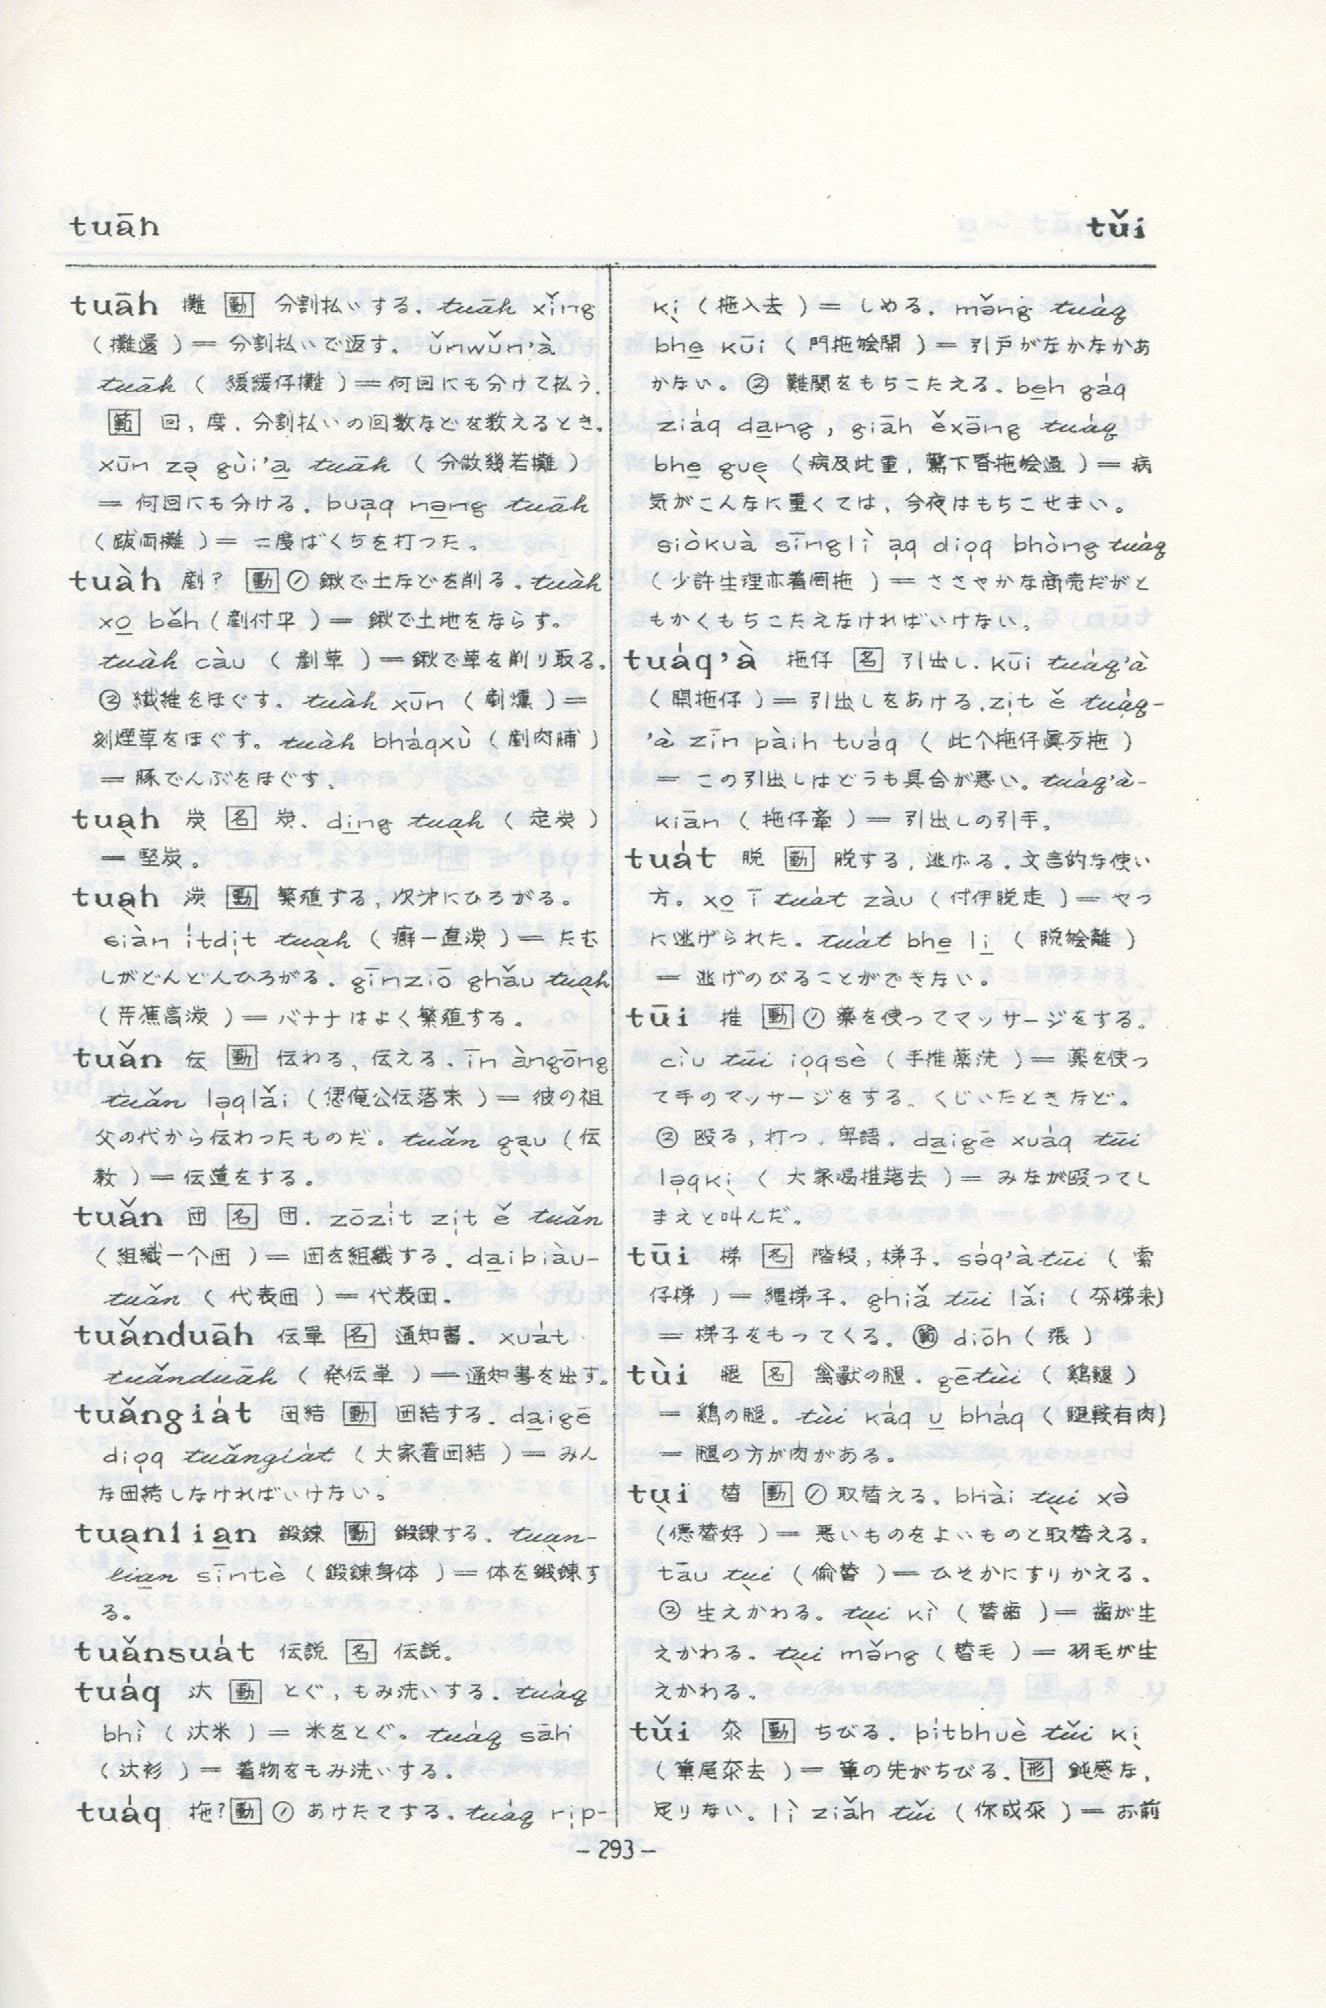 tuāh
tǔi
tuāh 攤 動 分割払いする. tuāh xǐng
(攤還)＝分割払いで返す. ǔnwǔn'à
tuāh (緩緩仔攤)＝何回にも分けて払う.
範 回, 度. 分割払いの回数などを数えるとき.
xūn zə̣ gùi'a̱ tuāh (分做幾若攤)
＝何回にも分ける. buạq nə̱ng tuāh
(跋両攤)＝二度ばくちを打った.
tuàh 剷? 動 ① 鍬で土などを削る. tuàh
xo̱ běh (剷付平)＝鍬で土地をならす.
tuàh càu (剷草)＝鍬で草を削り取る.
② 繊維をほぐす. tuàh xūn (剷燻)＝
刻煙草をほぐす. tuàh bháqxù (剷肉脯)
＝豚でんぶをほぐす.
tuạh 炭 名 炭. di̱ng tuạh (定炭)
＝堅炭.
tuạh 湠 動 繁殖する, 次ザにひろがる.
siàn ı̍tdı̍t tuạh (癬一直湠)＝たむ
しがどんどんひろがる. gīnziō ghǎu tuạh
(芹蕉高湠)＝バナナはよく繁殖する.
tuǎn 伝 動 伝わる, 伝える. īn àngōng
tuǎn lə̣qlǎi (偬俺公伝落来)＝彼の祖
父の代から伝わったものだ. tuǎn gạu (伝
教)＝伝道をする.
tuǎn 団 名 団. zōzı̍t zı̍t ě tuǎn
(組織一个団)＝団を組織する. da̱ibiàu-
tuǎn (代表団)＝代表団.
tuǎnduāh 伝單 名 通知書. xuát
tuǎnduāh (発伝単)＝通知書を出す.
tuǎngiát 団結 動 団結する. da̱igē
diọq tuǎngiát (大家着団結)＝みん
な団結しなければいけない.
tuạnlia̱n 鍛錬 動 鍛錬する. tuạn-
lia̱n sīntè (鍛錬身体)＝体を鍛錬す
る.
tuǎnsuát 伝説 名 伝説.
tuáq 汏 動 とぐ, もみ洗いする. tuáq
bhì (汏米)＝米をとぐ. tuáq sāh
(汏衫)＝着物をもみ洗いする.
tuáq 拖? 動 ① あけたてする. tuáq rı̣p-
kị (拖入去)＝しめる. mǎng tuáq
bhe̱ kūi (門拖𣍐開)＝引戸がなかなかあ
かない. ② 難関をもちこたえる. be̱h gáq
ziáq da̱ng, giāh ěxāng tuáq
bhe̱ guẹ (病及此重, 驚下昏拖𣍐過)＝病
気がこんなに重くては, 今夜はもちこせまい.
siòkuà sīnglì ạq diọq bhòng tuáq
(少許生理亦着罔拖)＝ささやかな商売だがと
もかくもちこたえなければいけない.
tuáq'à 拖仔 名 引出し. kūi tuáq'à
(開拖仔)＝引出しをあける. zı̍t ě tuáq-
'à zīn pàih tuáq (此个拖仔眞歹拖)
＝この引出しはどうも具合が悪い. tuáq'à-
kiān (拖仔牽)＝引出しの引手.
tuát 脱 動 脱する, 逃れる. 文言的な使い
方. xo̱ ī tuát zàu (付伊脱走)＝やつ
に逃げられた. tuát bhe̱ li̱ (脱𣍐離)
＝逃げのびることができない.
tūi 推 動 ① 薬を使ってマッサージをする.
cìu tūi iọqsè (手推薬洗)＝薬を使っ
て手のマッサージをする. くじいたときなど.
② 殴る, 打つ. 卑語. da̱igē xuáq tūi
lə̣qkị (大家喝推落去)＝みなが殴ってし
まえと叫んだ.
tūi 梯 名 階段, 梯子. sə́q'à tūi (索
仔梯)＝縄梯子. ghiǎ tūi lǎi (夯梯来)
＝梯子をもってくる. 範 diōh (張)
tùi 腿 名 禽獣の腿. gētùi (鶏腿)
＝鶏の腿. tùi káq u̱ bháq (腿較有肉)
＝腿の方が肉がある.
tụi 替 動 ① 取替える. bhài tụi xə̀
(僫替好)＝悪いものをよいものと取替える.
tāu tụi (偷替)＝ひそかにすりかえる.
② 生えかわる. tụi kì (替歯)＝歯が生
えかわる. tụi mǎng (替毛)＝羽毛が生
えかわる.
tǔi 動 ちびる. pítbhuè tǔi kị
＝筆の先がちびる. 形 鈍感な,
足りない. lì ziǎh tǔi ＝お前
－293－